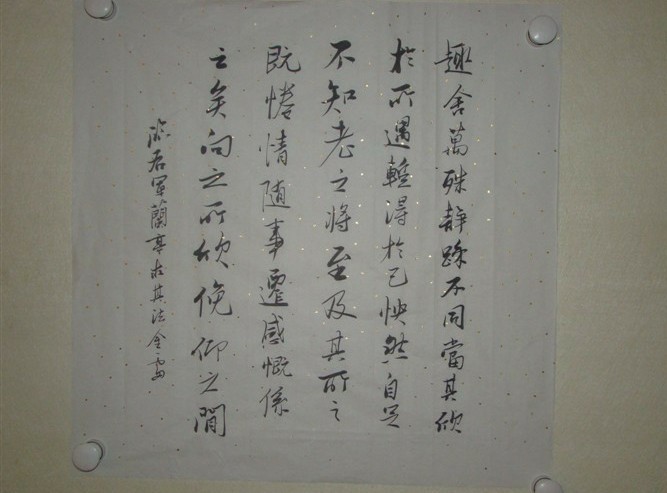 趣舍萬殊靜躁不同當其欣
於所遇蹔得於己怏然自足
不知老之將至及其所之
既惓情隨事遷感慨係
之矣向之所欣俛仰之閒
臨右軍蘭亭求其法金雷